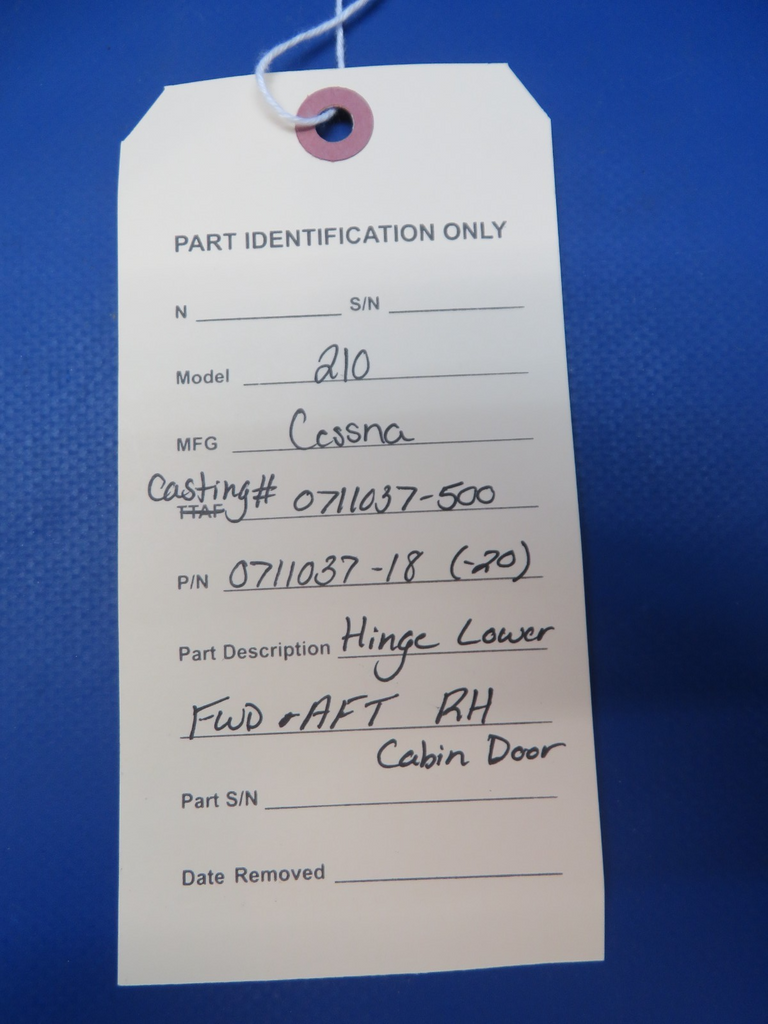 PART IDENTIFICATION ONLY
N S/N
Model 210
MFG Cessna
Casting# TTAF 0711037-500
P/N 0711037-18 (-20)
Part Description Hinge Lower
FWD & AFT RH
Cabin Door
Part S/N
Date Removed